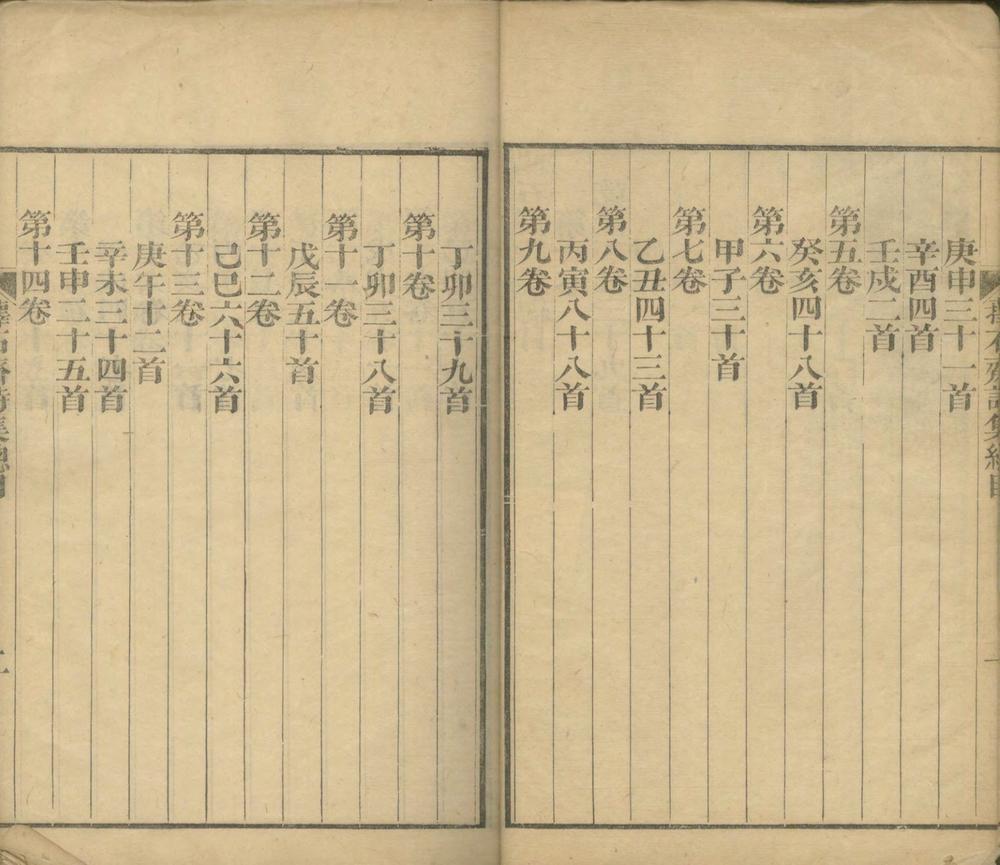 庚申三十一首
辛酉四首
壬戍二首
第五卷
癸亥四十八首
第六卷
甲子三十首
第七卷
乙丑四十三首
第八卷
丙寅八十八首
第九卷
丁卯三十九首
第十卷
丁卯三十八首
第十一卷
戊辰五十首
第十二卷
己巳六十六首
第十三卷
庚午十二首
辛未三十四首
壬申二十五首
第十四卷